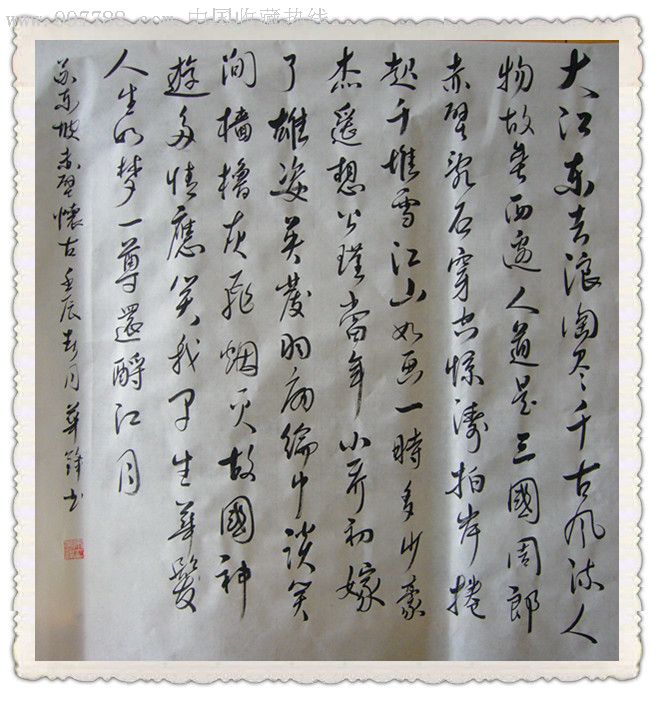 www.997788.com 中国收藏热线
大江东去浪淘尽千古风流人
物故垒西邊人道是三國周郎
赤壁乱石穿空惊濤拍岸捲
起千堆雪江山如画一時多少豪
杰遥想公瑾當年小乔初嫁
了雄姿英發羽扇綸巾談笑
间檣櫓灰飛烟灭故國神
遊多情應笑我早生華髮
人生如梦一尊還酹江月
苏东坡赤壁懷古壬辰春月華鋒书